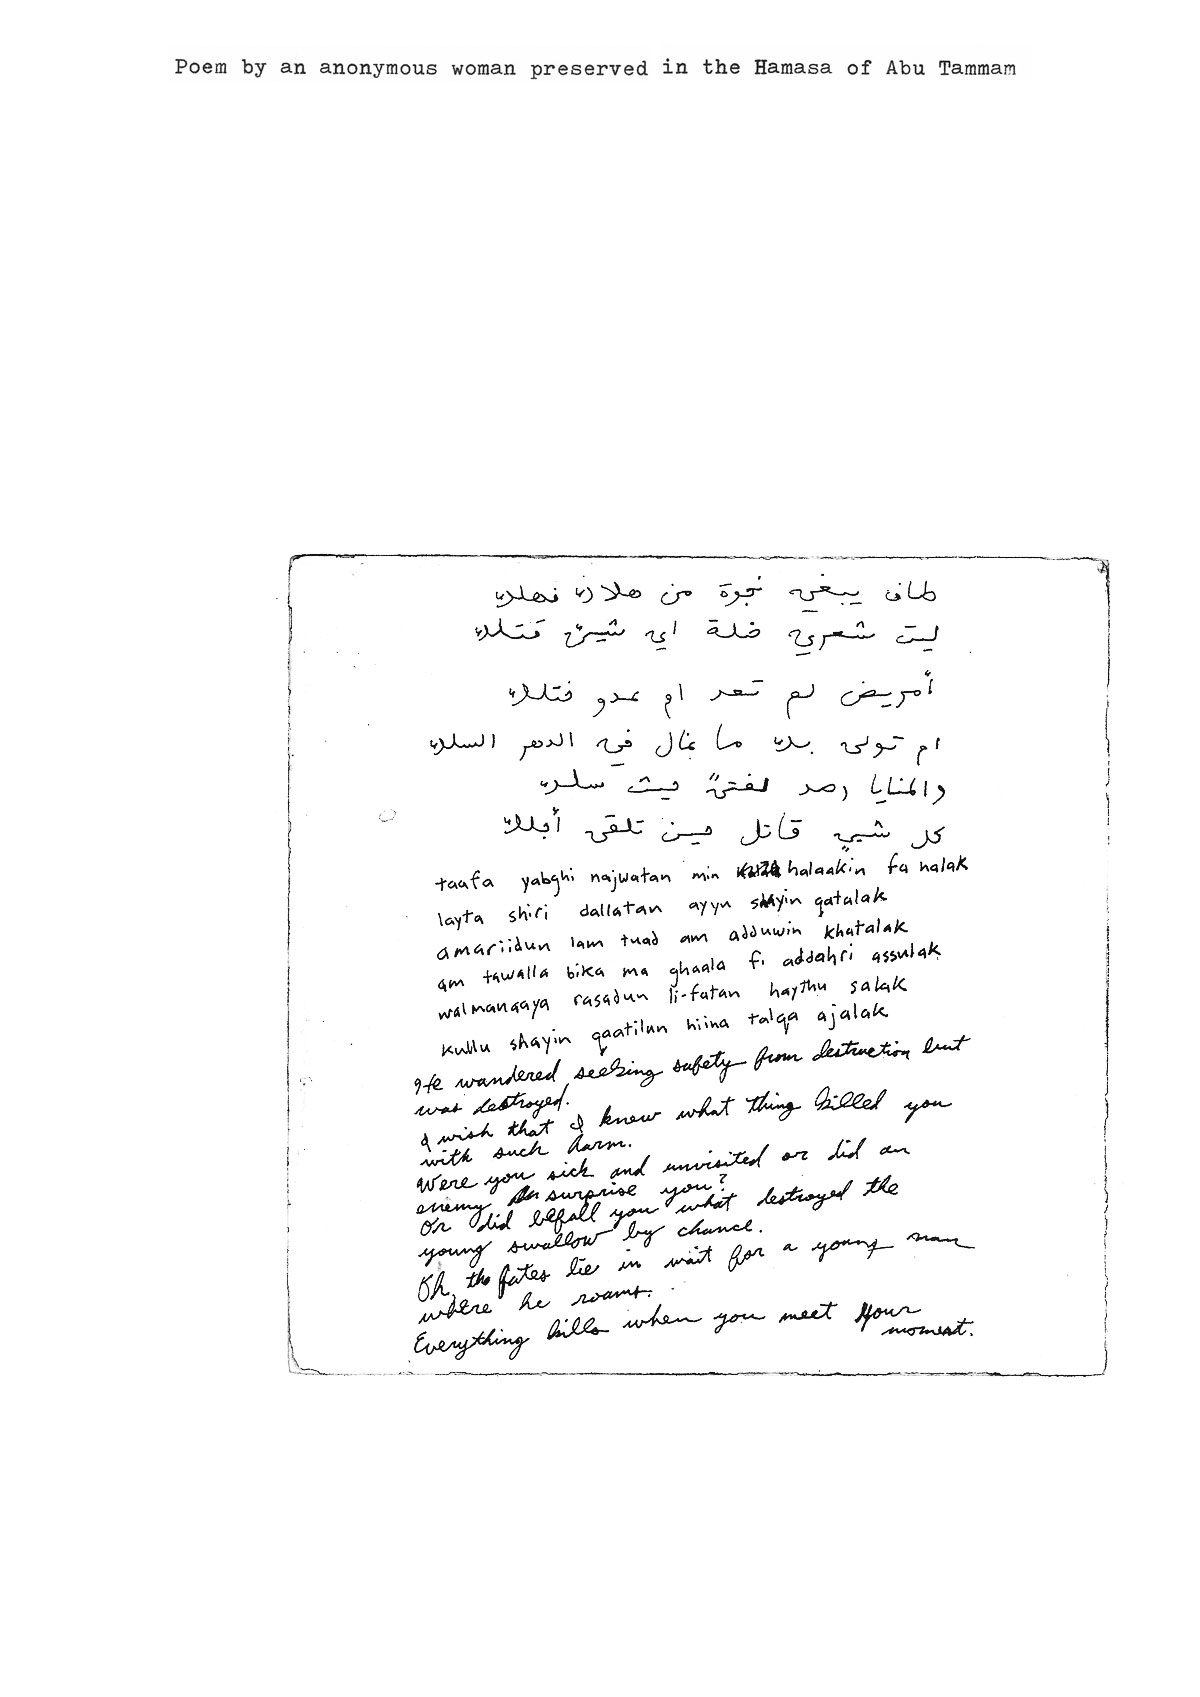 Poem by an anonymous woman preserved in the Hamasa of Abu Tammam
طاف يبغي نجوة من هلاك فهلك
ليت شعري ضلة اي شيئ قتلك
أمريض لم تعد ام عدو ختلك
ام تولى بك ما غال في الدهر السلك
والمنايا رصد لفتىً حيث سلك
كل شيءٍ قاتل حين تلقى أجلك
taafa yabghi najwatan min halaakin fa halak
layta shiri dallatan ayyu shayin qatalak
amariidun lam tuad am adduwin khatalak
am tawalla bika ma ghaala fi addahri assulak
walmanaaya rasadun li-fatan haythu salak
kullu shayin qaatilun hiina talqa ajalak
He wandered seeking safety from destruction but
was destroyed.
I wish that I knew what thing killed you
with such harm.
Were you sick and unvisited or did an
enemy surprise you?
Or did befall you what destroyed the
young swallow by chance.
Oh, the fates lie in wait for a young man
where he roams.
Everything kills when you meet your
moment.